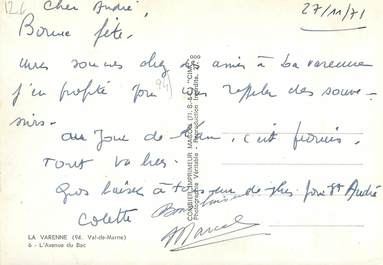 Cher André, 27/11/71
Bonne fête.
nous sommes chez des amis à La varenne
j'en profite pour vous rappeler des souve-
nirs.
au Jour de c'est promis.
Tout va bien.
Gros baisers à tous de plus pour St André
Colette Bons baisers
Marcel
LA VARENNE (94. Val-de-Marne)
6 - L'Avenue du Bac
COMBIER IMPRIMEUR MACON (71, S.-&-L.) "CIM"
Photographie Véritable - Reproduction Interdite